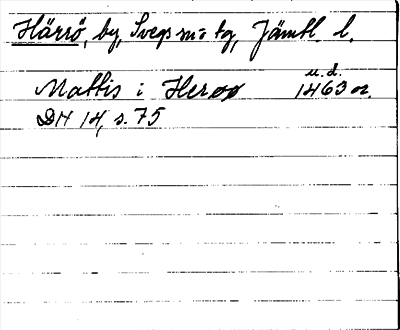 Härrö, by, Svegs sn o tg, Jämtl. l.
u. d.
Mattis i Herøø 1463 or.
DN 14, s. 75